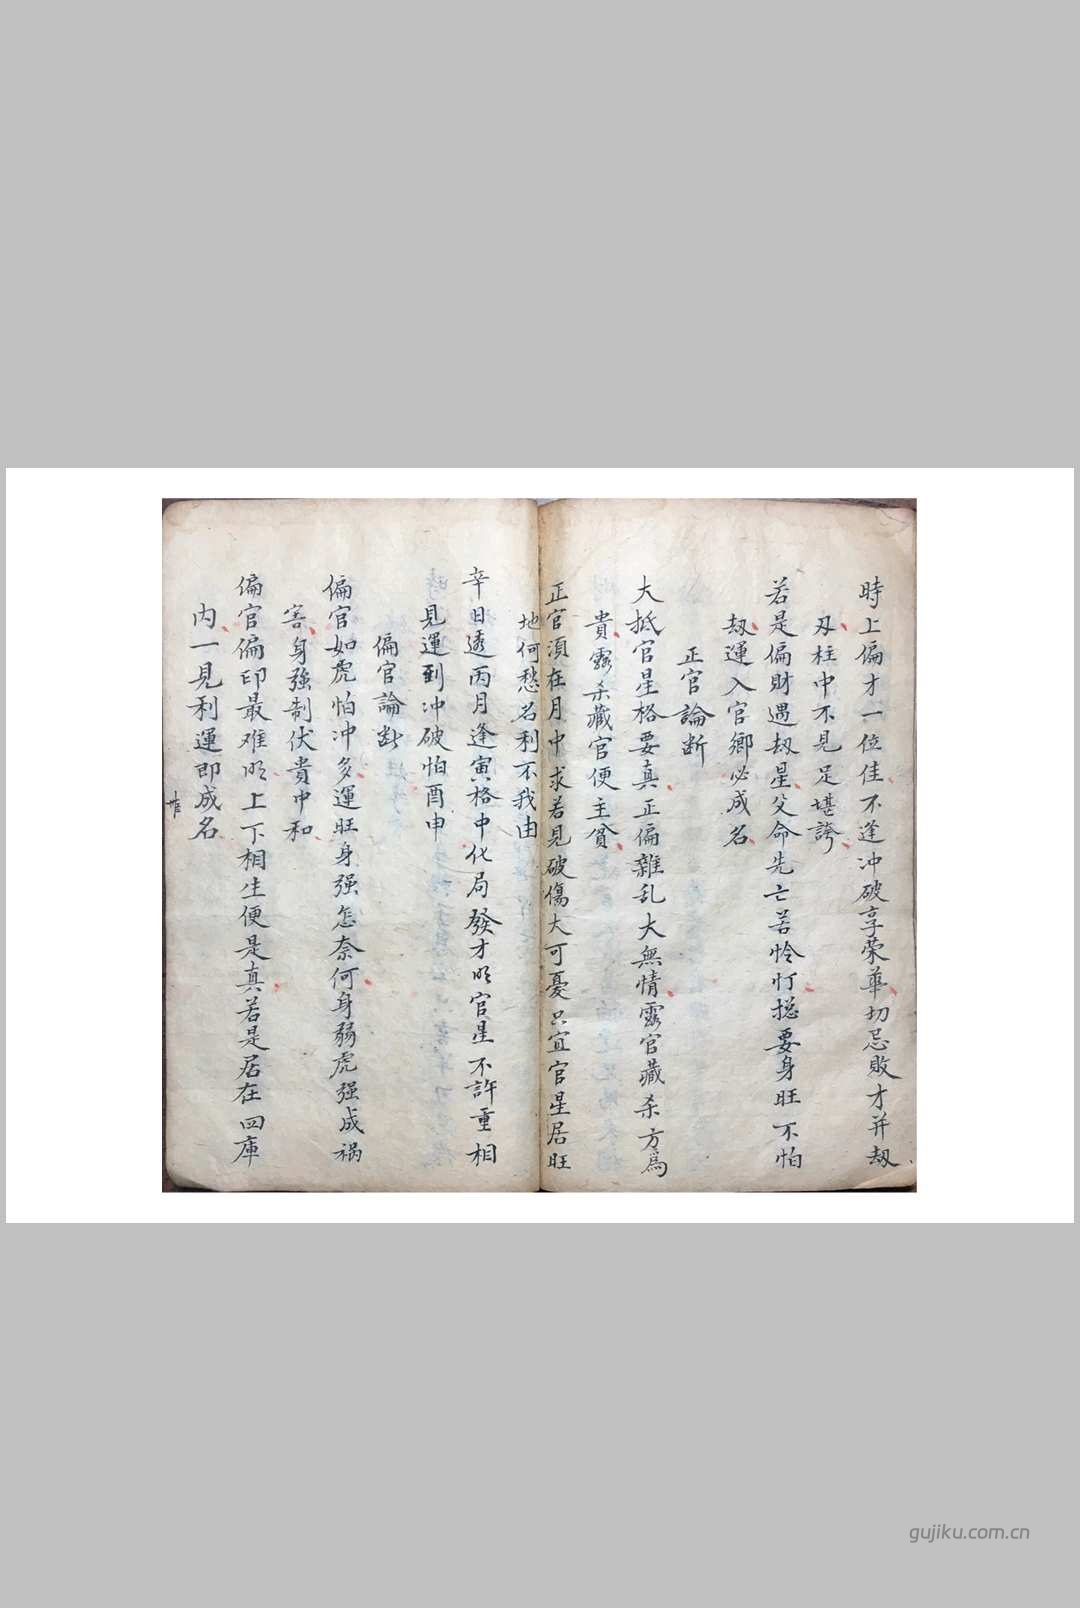 時上偏才一位佳不逢冲破享荣華切忌敗才并刼
刃柱中不見足堪誇
若是偏財遇刼星父命先亡苦怜仃搃要身旺不怕
刼運入官鄉必成名
正官論断
大抵官星格要真正偏雜乱大無情露官藏杀方爲
貴露杀藏官便主貧
正官須在月中求若見破傷大可憂只宜官星居旺
地何愁名利不我由
辛日透丙月逢寅格中化局發才明官星不許重相
見運到冲破怕酉申
偏官論断
偏官如虎怕冲多運旺身强怎奈何身弱虎强成祸
害身強制伏貴中和
偏官偏印最难明上下相生便是真若是居在四庫
内一見利運即成名
gujiku.com.cn